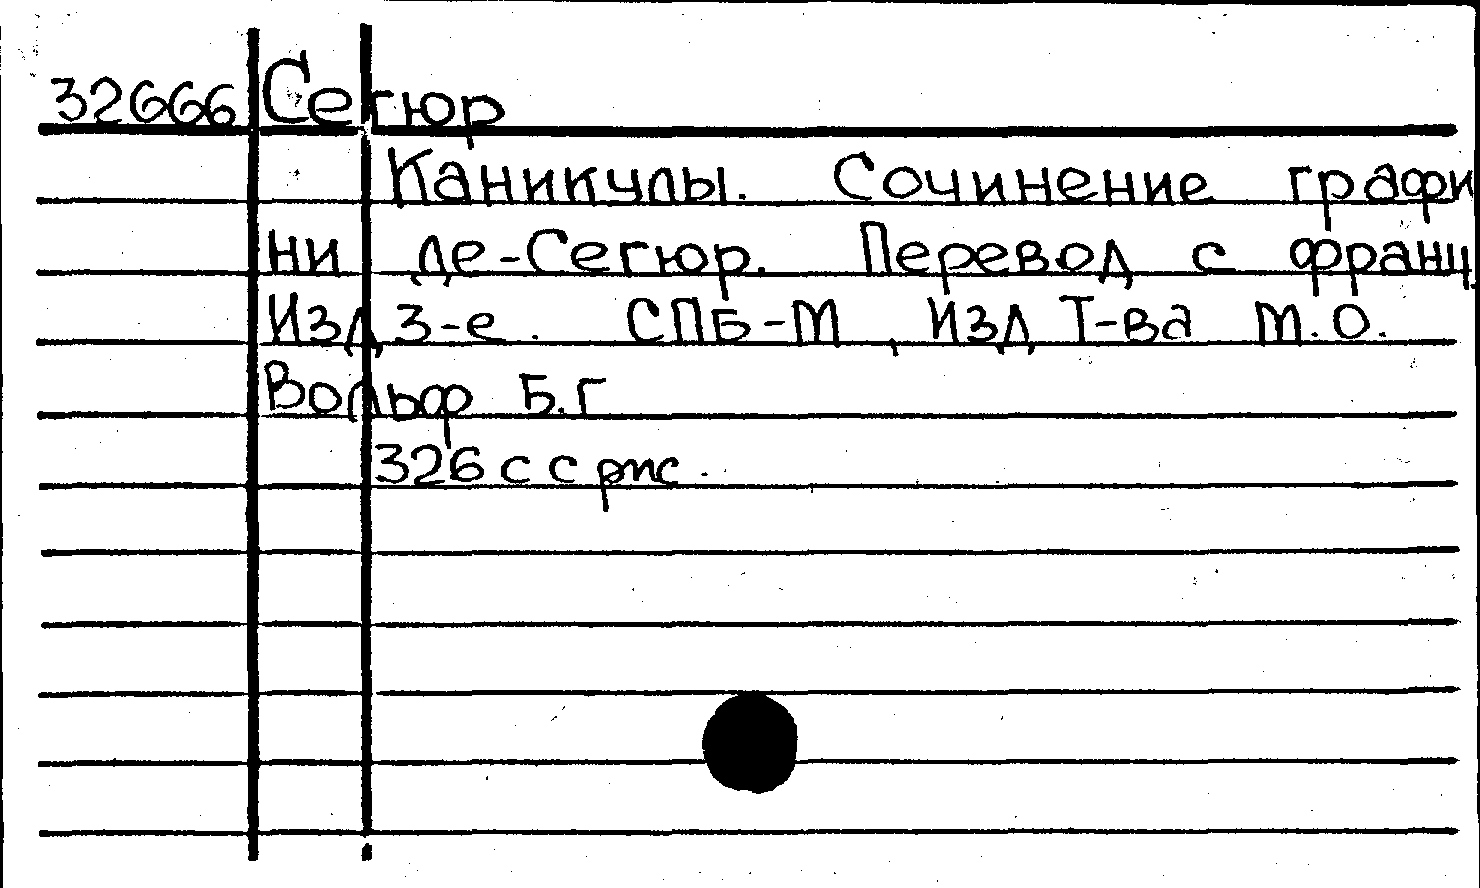 32666 Сегюр
Каникулы. Сочинение графи
ни де-Сегюр. Перевод с франц.
Изд 3-е. СПБ-М, Изд Т-ва М.О.
Вольф Б.Г
326 с с рис.